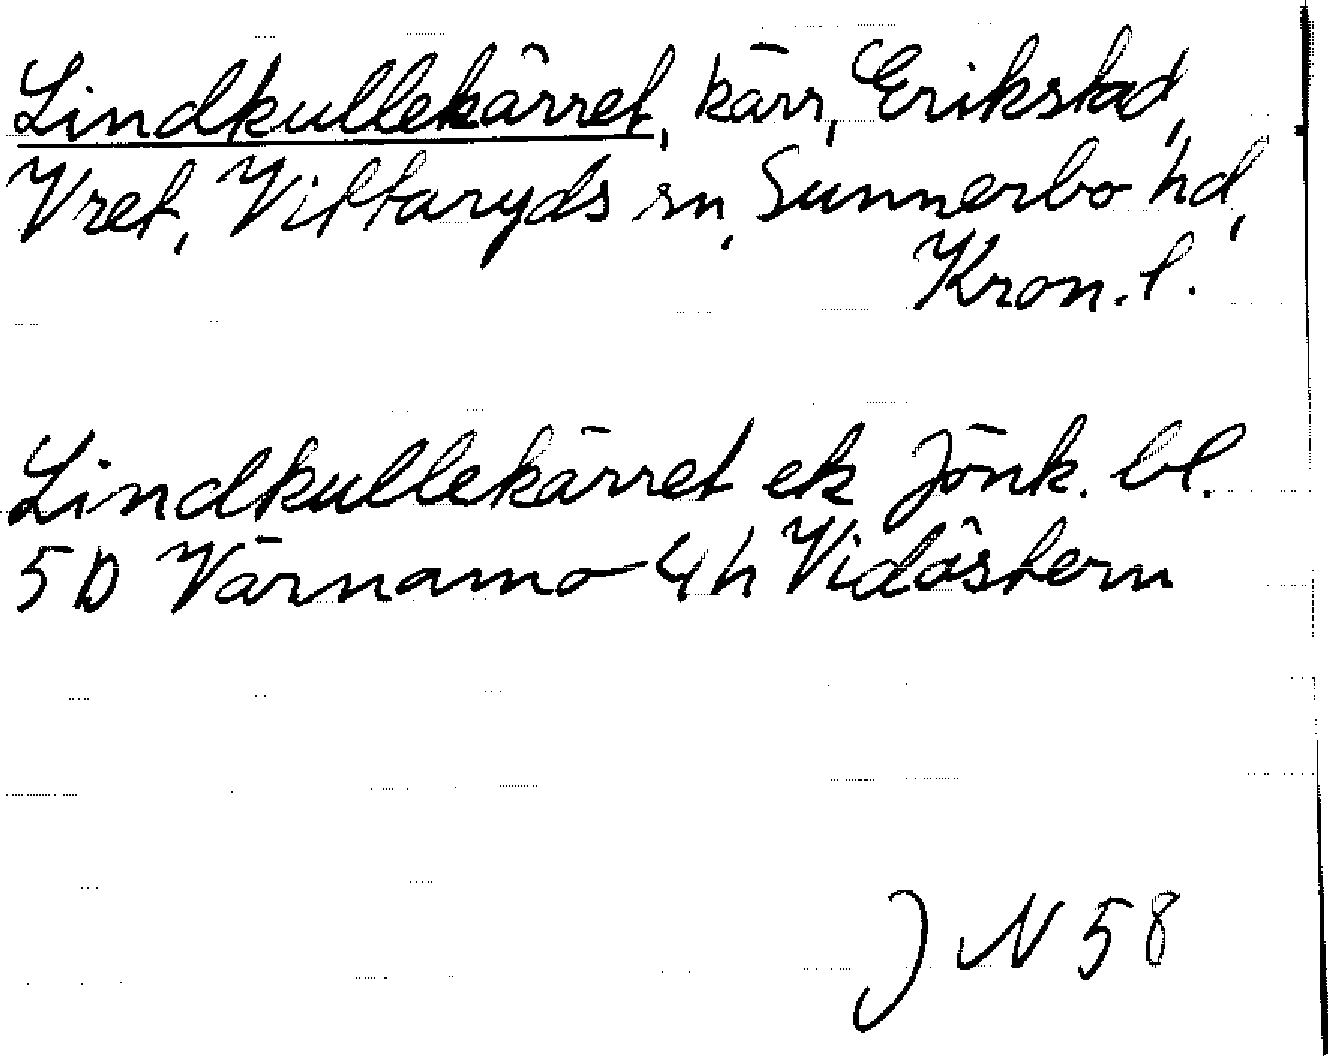 Lindkullekärret, kärr, Erikstad,
Vret, Vittaryds sn, Sunnerbo hd,
Kron. l.
Lindkullekärret ek Jönk. bl.
5D Värnamo 4h Vidöstern
J N 58